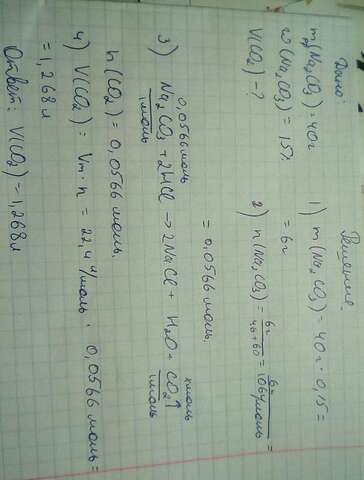 Дано:
m(Na2CO3) = 40г
ω(Na2CO3) = 15%
V(CO2) - ?
Решение
1) m(Na2CO3) = 40г · 0,15 =
= 6г
2) n(Na2CO3) = 6г/46+60 = 6г/106г/моль =
= 0,0566 моль.
0,0566 моль xмоль
3) Na2CO3 + 2HCl → 2NaCl + H2O + CO2↑
1моль 1моль
n(CO2) = 0,0566 моль.
4) V(CO2) = Vm · n = 22,4 л/моль · 0,0566 моль =
= 1,268 л
Ответ: V(CO2) = 1,268 л